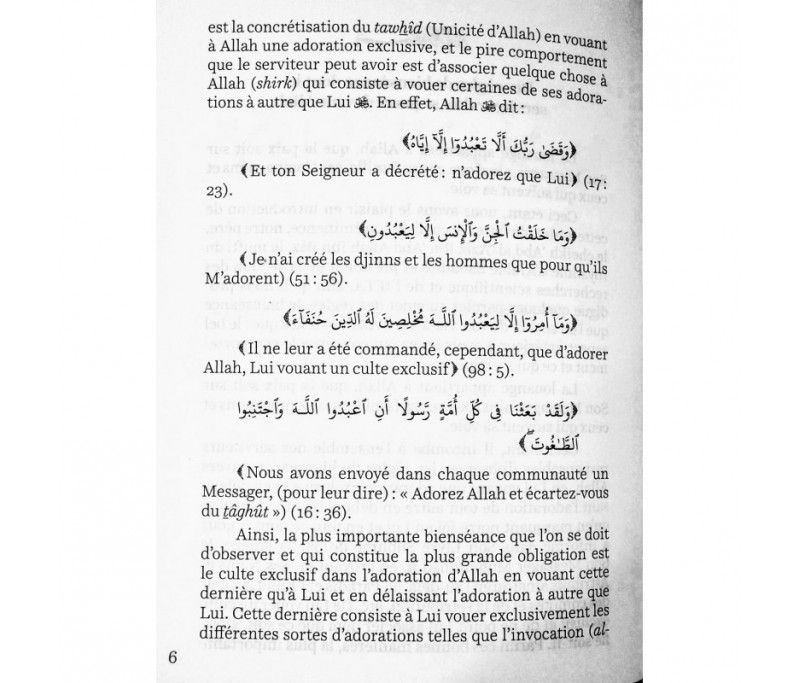 est la concrétisation du tawhîd (Unicité d'Allah) en vouant
à Allah une adoration exclusive, et le pire comportement
que le serviteur peut avoir est d'associer quelque chose à
Allah (shirk) qui consiste à vouer certaines de ses adora-
tions à autre que Lui ﷻ. En effet, Allah ﷻ dit :
﴿وَقَضَىٰ رَبُّكَ أَلَّا تَعْبُدُوٓا إِلَّآ إِيَّاهُ﴾
﴾Et ton Seigneur a décrété : n'adorez que Lui﴿ (17 :
23).
﴿وَمَا خَلَقْتُ ٱلْجِنَّ وَٱلْإِنسَ إِلَّا لِيَعْبُدُونِ﴾
﴾Je n'ai créé les djinns et les hommes que pour qu'ils
M'adorent) (51 : 56).
﴿وَمَآ أُمِرُوٓا إِلَّا لِيَعْبُدُوا ٱللَّهَ مُخْلِصِينَ لَهُ ٱلدِّينَ حُنَفَآءَ﴾
﴾Il ne leur a été commandé, cependant, que d'adorer
Allah, Lui vouant un culte exclusif﴿ (98 : 5).
﴿وَلَقَدْ بَعَثْنَا فِى كُلِّ أُمَّةٍ رَّسُولًا أَنِ ٱعْبُدُوا ٱللَّهَ وَٱجْتَنِبُوا
ٱلطَّـٰغُوتَ ۖ﴾
﴾Nous avons envoyé dans chaque communauté un
Messager, (pour leur dire) : « Adorez Allah et écartez-vous
du tâghût ») (16 : 36).
Ainsi, la plus importante bienséance que l'on se doit
d'observer et qui constitue la plus grande obligation est
le culte exclusif dans l'adoration d'Allah en vouant cette
dernière qu'à Lui et en délaissant l'adoration à autre que
Lui. Cette dernière consiste à Lui vouer exclusivement les
différentes sortes d'adorations telles que l'invocation (al-
6